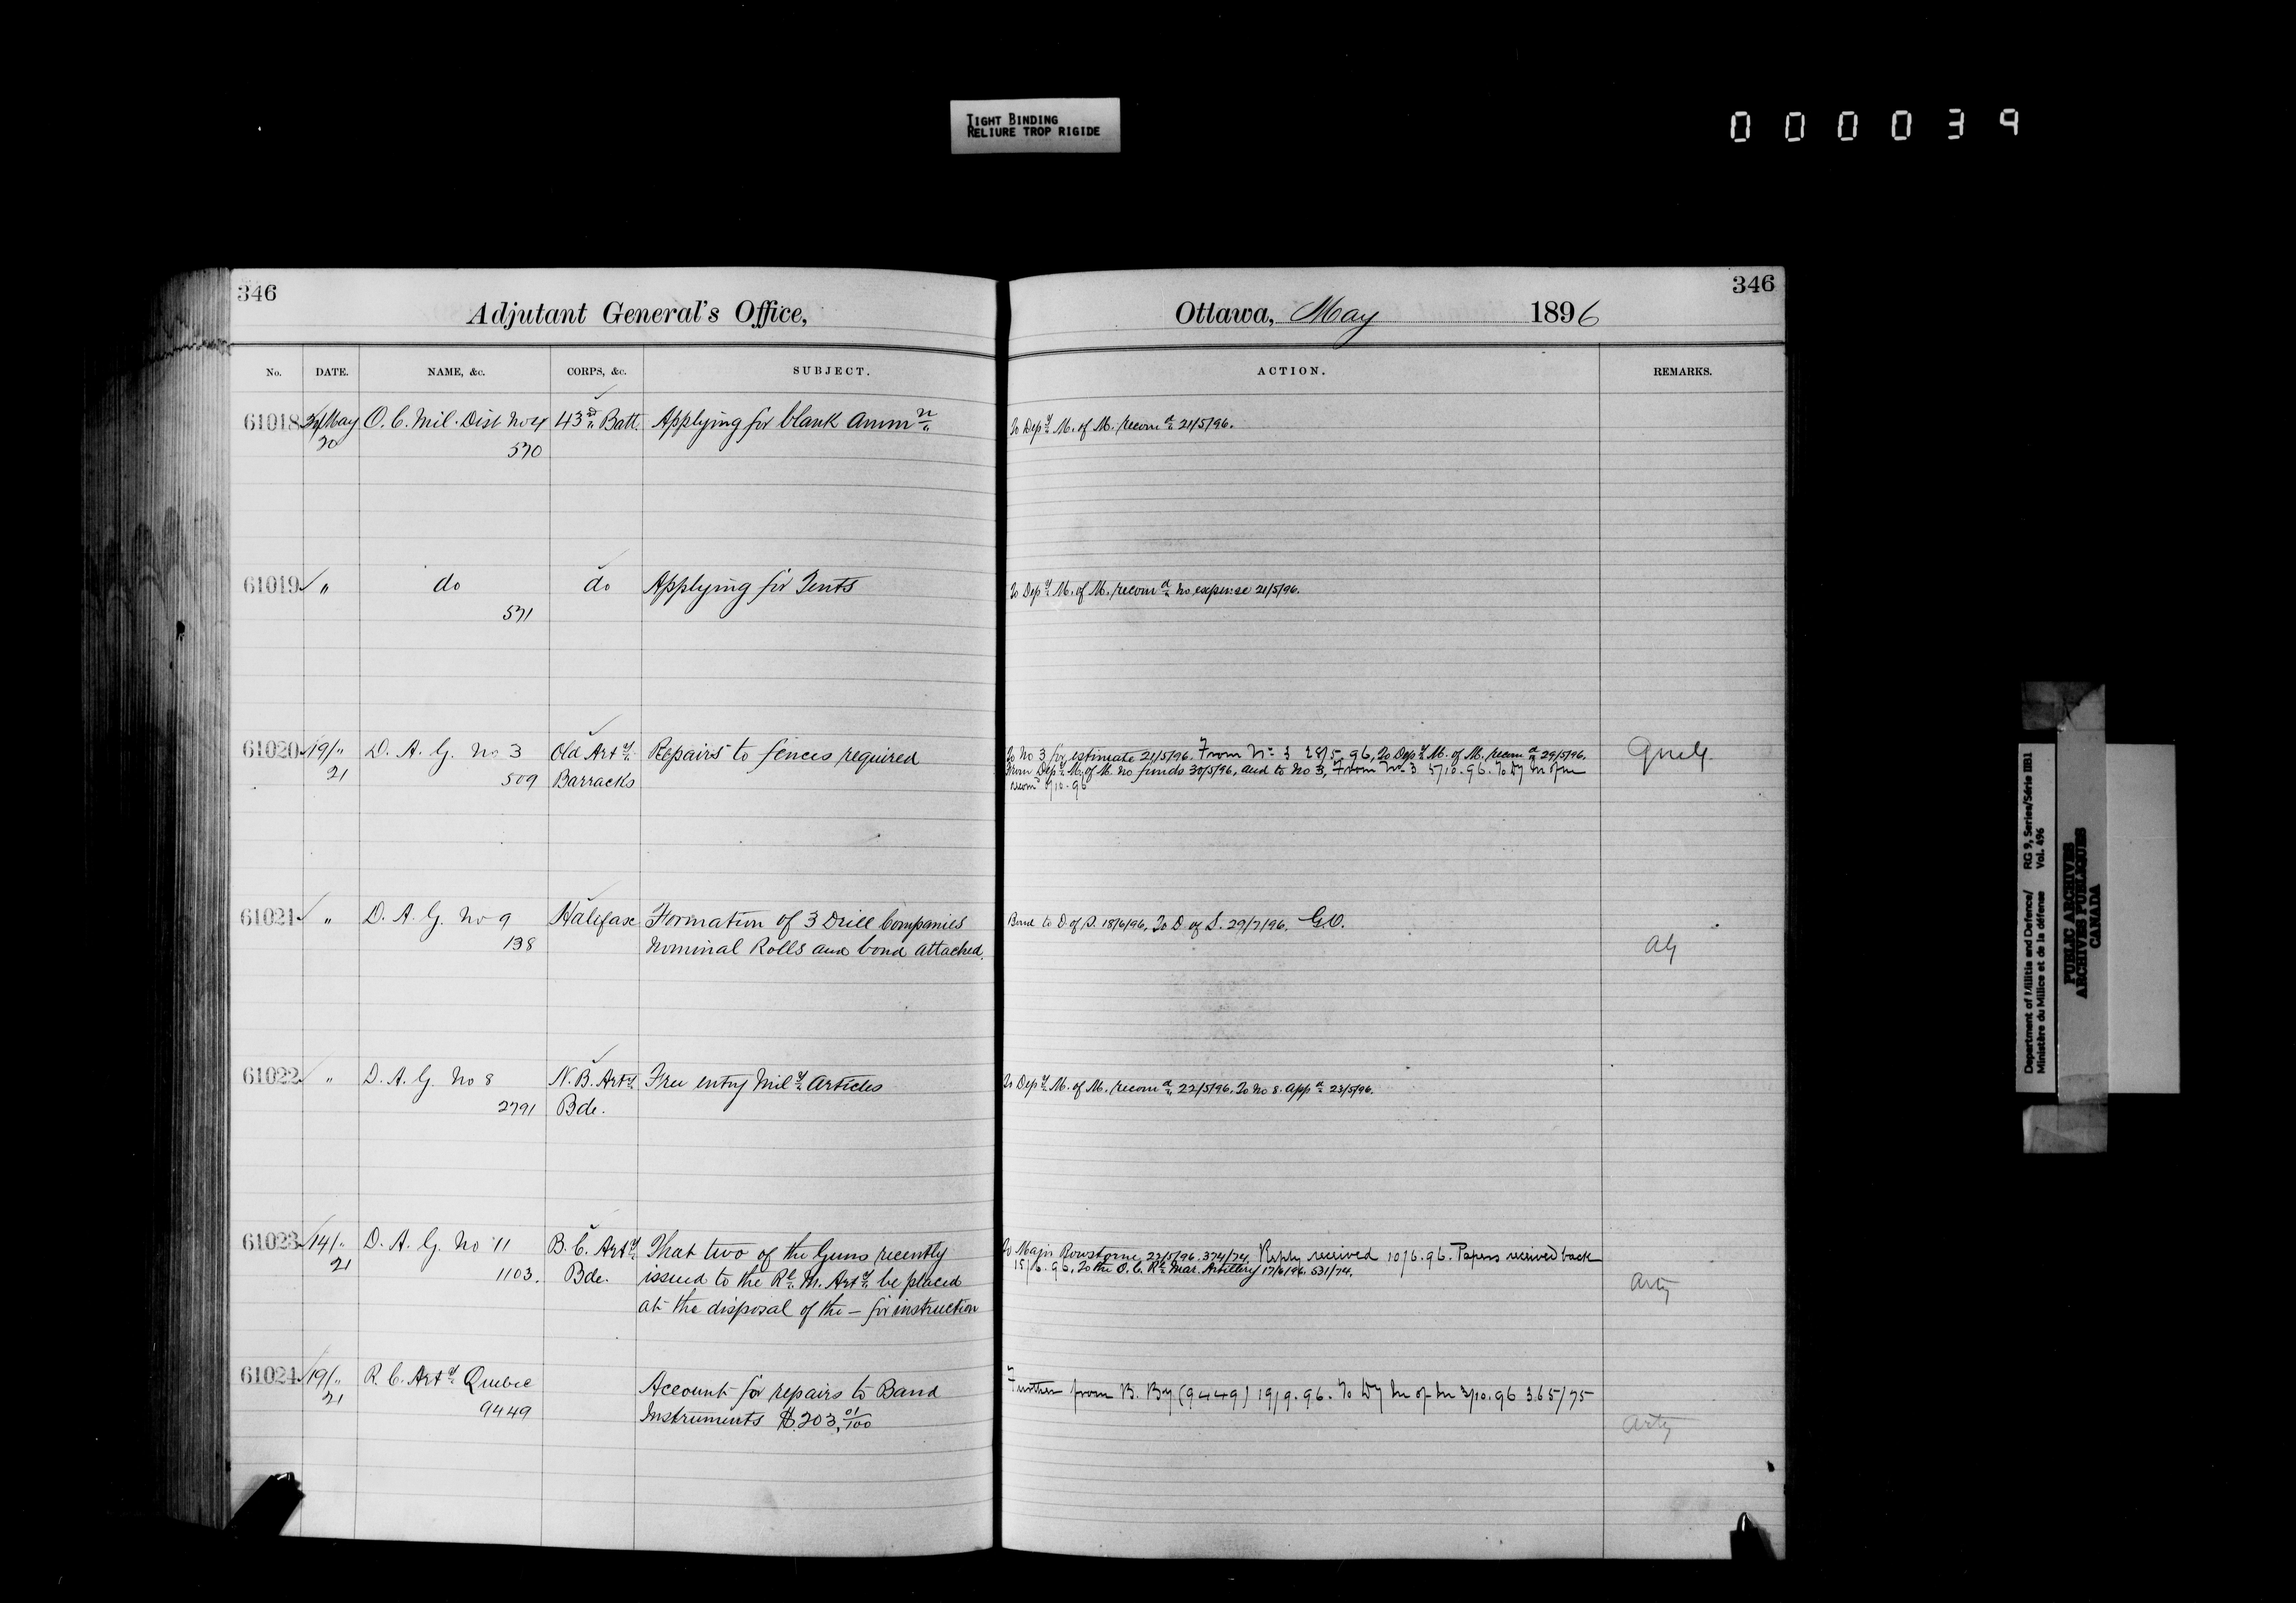 TIGHT BINDING
RELIURE TROP RIGIDE
000039
346
Adjutant General's Office,
No. DATE. NAME, &c. CORPS, &c. SUBJECT.
61018 May O. C. Mil. Dist No 4 43rd Batt. Applying for blank Ammn
20 570
61019 " do do Applying for Tents
571
61020 19/" D. A. G. No 3 Old Arty Repairs to fences required
21 509 Barracks
61021 " D. A. G. No 9 Halifax Formation of 3 Drill Companies
138 Nominal Rolls and bond attached.
61022 " D. A. G. No 8 N. B. Arty Free entry Mily Articles
2791 Bde.
61023 14/" D. A. G. No 11 B. C. Arty That two of the Guns recently
21 1103. Bde. issued to the Rl. M. Arty be placed
at the disposal of the – for instruction
61024 19/" R. C. Arty Quebec Account for repairs to Band
21 9449 Instruments $203 01/100
346
Ottawa, May 1896
ACTION. REMARKS.
To Depy M. of M. recomd 21/5/96.
To Depy M. of M. recomd no expense 21/5/96.
To No 3 for estimate 21/5/96. From No 3 28/5.96, To Depy M. of M. recomd 29/5/96.
From Depy M. of M. no funds 30/5/96, and to No 3, From No 3 5/10.96. To Dy M of M
recomd /10.96
Bond to D of S. 18/6/96, To D of S. 29/7/96. G.O.
AG
To Depy M. of M. recomd 22/5/96. To No 8. appd 23/5/96.
To Major 22/5/96. 374/74. Reply received 10/6.96. Papers received back
15/6.96, To the O. C. Rl Mar. Artillery 17/6/96. 531/74.
Arty
Further from B. By (9449) 19/9.96. To Dy M of M 3/10.96 365/75
Arty
Department of Militia and Defence/ RG 9, Series/Série IIB1
Ministère du Milice et de la défense Vol. 496
PUBLIC ARCHIVES
ARCHIVES PUBLIQUES
CANADA